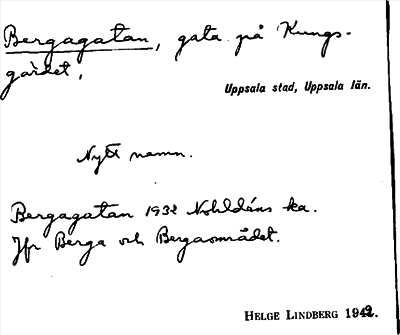 Bergagatan, gata på Kungs-
gärdet,
Uppsala stad, Uppsala län.
Nytt namn.
Bergagatan 1932 Nohldéns ka.
Jfr Berga och Bergaområdet.
HELGE LINDBERG 1942.